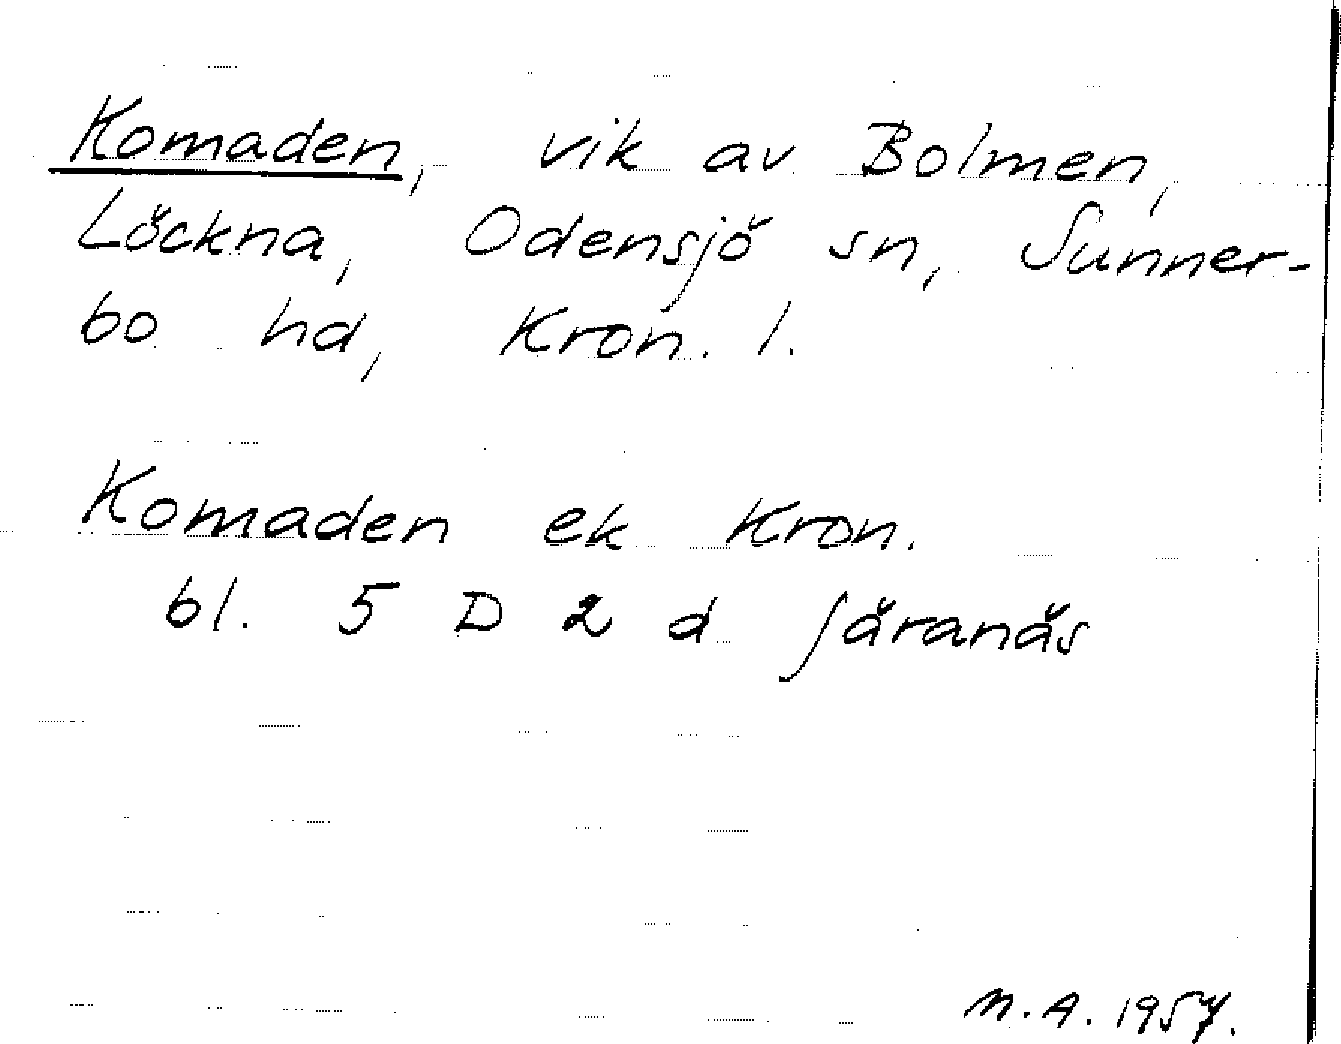 Komaden, vik av Bolmen,
Löckna, Odensjö sn, Sunner-
bo hd, Kron. l.
Komaden ek Kron.
bl. 5 D 2 d Järanäs
M.A. 1957.